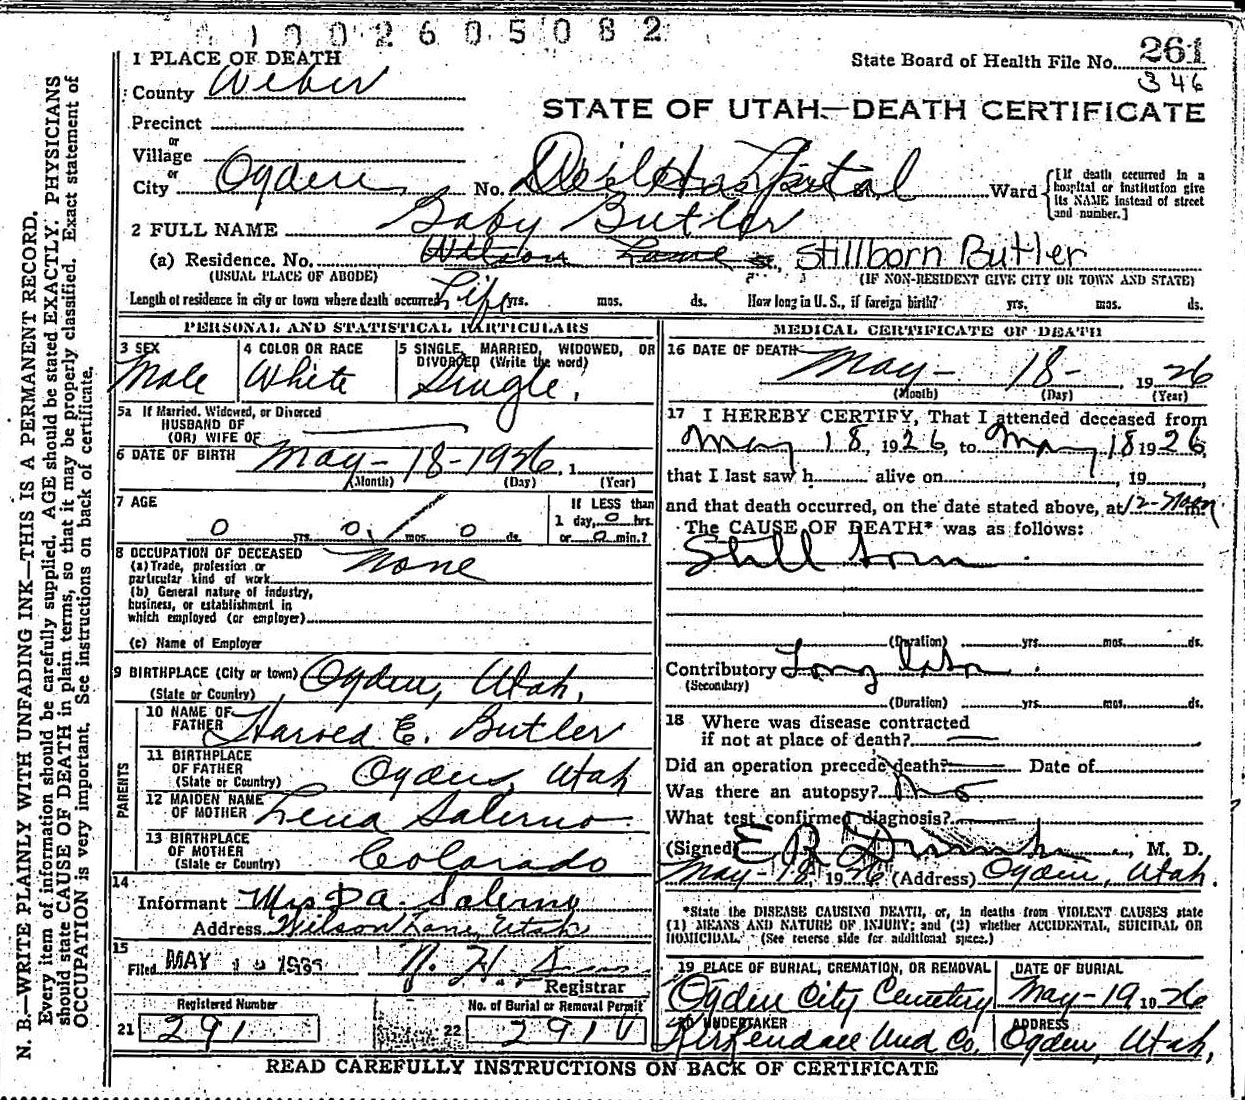 1 0 0 2 6 0 5 0 8 2
1 PLACE OF DEATH
State Board of Health File No. 261
346
County Weber
STATE OF UTAH—DEATH CERTIFICATE
Precinct
or
Village
or
City Ogden No. Dee Hospital Ward
[If death occurred in a hospital or institution give its NAME instead of street and number.]
2 FULL NAME Baby Butler
(a) Residence. No. Wilson Lane St., Stillborn Butler
(USUAL PLACE OF ABODE) (IF NON-RESIDENT GIVE CITY OR TOWN AND STATE)
Length of residence in city or town where death occurred Life yrs. mos. ds. How long in U. S., if foreign birth? yrs. mos. ds.
PERSONAL AND STATISTICAL PARTICULARS
3 SEX Male
4 COLOR OR RACE White
5 SINGLE, MARRIED, WIDOWED, OR DIVORCED (Write the word) Single.
5a If Married, Widowed, or Divorced
HUSBAND OF
(OR) WIFE OF
6 DATE OF BIRTH May - 18 - 1926. 1
(Month) (Day) (Year)
7 AGE
0 yrs. 0 mos. 0 ds.
If LESS than
1 day, 0 hrs.
or 0 min.?
8 OCCUPATION OF DECEASED None
(a) Trade, profession or
particular kind of work
(b) General nature of industry,
business, or establishment in
which employed (or employer)
(c) Name of Employer
9 BIRTHPLACE (City or town) Ogden, Utah.
(State or Country)
PARENTS
10 NAME OF FATHER Harved E. Butler
11 BIRTHPLACE OF FATHER (State or Country) Ogden, Utah
12 MAIDEN NAME OF MOTHER Lena Salerno
13 BIRTHPLACE OF MOTHER (State or Country) Colorado
14
Informant Mrs D A. Salerno
Address Wilson Lane, Utah
15
Filed MAY 19
Registrar
Registered Number
21 291
No. of Burial or Removal Permit
22 291 V
MEDICAL CERTIFICATE OF DEATH
16 DATE OF DEATH May - 18 - , 1926
(Month) (Day) (Year)
17 I HEREBY CERTIFY, That I attended deceased from
May 18, 1926, to May 18 1926,
that I last saw h alive on , 19
and that death occurred, on the date stated above, at 12-Noon m.
The CAUSE OF DEATH* was as follows:
Still born
(Duration) yrs. mos. ds.
Contributory Long labor
(Secondary)
(Duration) yrs. mos. ds.
18 Where was disease contracted
if not at place of death?
Did an operation precede death? Date of
Was there an autopsy? No
What test confirmed diagnosis?
(Signed) E R , M. D.
May - 18, 1926 (Address) Ogden, Utah.
*State the DISEASE CAUSING DEATH, or, in deaths from VIOLENT CAUSES state
(1) MEANS AND NATURE OF INJURY; and (2) whether ACCIDENTAL, SUICIDAL OR
HOMICIDAL. (See reverse side for additional space.)
19 PLACE OF BURIAL, CREMATION, OR REMOVAL
Ogden City Cemetery
DATE OF BURIAL
May - 19 1926
20 UNDERTAKER
Kirkendall Und Co.
ADDRESS
Ogden, Utah,
READ CAREFULLY INSTRUCTIONS ON BACK OF CERTIFICATE
N. B.—WRITE PLAINLY WITH UNFADING INK—THIS IS A PERMANENT RECORD.
Every item of information should be carefully supplied. AGE should be stated EXACTLY. PHYSICIANS
should state CAUSE OF DEATH in plain terms, so that it may be properly classified. Exact statement of
OCCUPATION is very important. See instructions on back of certificate.